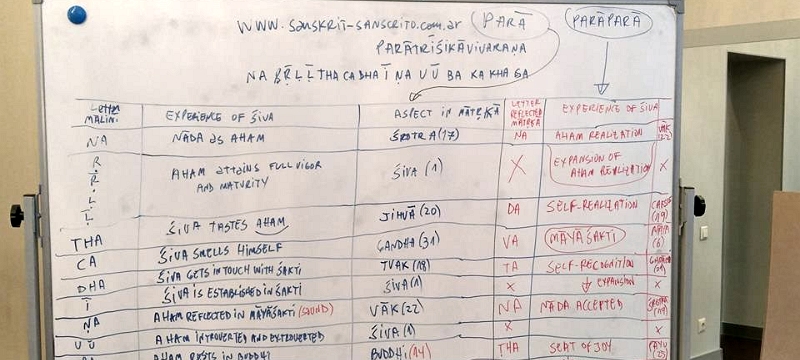 WWW.SANSKRIT-SANSCRITO.COM.AR PARĀ PARĀPARĀ
PARĀTRĪŚIKĀVIVARAṆA
NA Ṛ Ṝ Ḷ Ḹ THA CA DHA Ī ṆA U Ū BA KA KHA GA
LETTER MALIN. EXPERIENCE OF ŚIVA ASPECT IN MĀTṚKĀ LETTER REFLECTED MĀTṚKĀ EXPERIENCE OF ŚIVA
NA NĀDA AS AHAM ŚROTRA (17) NA AHAM REALIZATION VĀK (22)
Ṛ Ṝ Ḷ Ḹ AHAM ATTAINS FULL VIGOR AND MATURITY ŚIVA (1) X EXPANSION OF AHAM REALIZATION X
THA ŚIVA TASTES AHAM JIHVĀ (20) DA SELF-REALIZATION (19)
CA ŚIVA SMELLS HIMSELF GANDHA (31) VA MĀYĀŚAKTI (6)
DHA ŚIVA GETS IN TOUCH WITH ŚAKTI TVAK (18) TA SELF-RECOGNITION
Ī ŚIVA IS ESTABLISHED IN ŚAKTI ŚIVA (1) X ↓ EXPANSION X
ṆA AHAM REFLECTED IN MĀYĀŚAKTI (SOUND) VĀK (22) NA NĀDA ACCEPTED
U Ū AHAM INTROVERTED AND EXTROVERTED ŚIVA (1) X X
AHAM RESTS IN BUDDHI BUDDHI (14) THA SEAT OF JOY